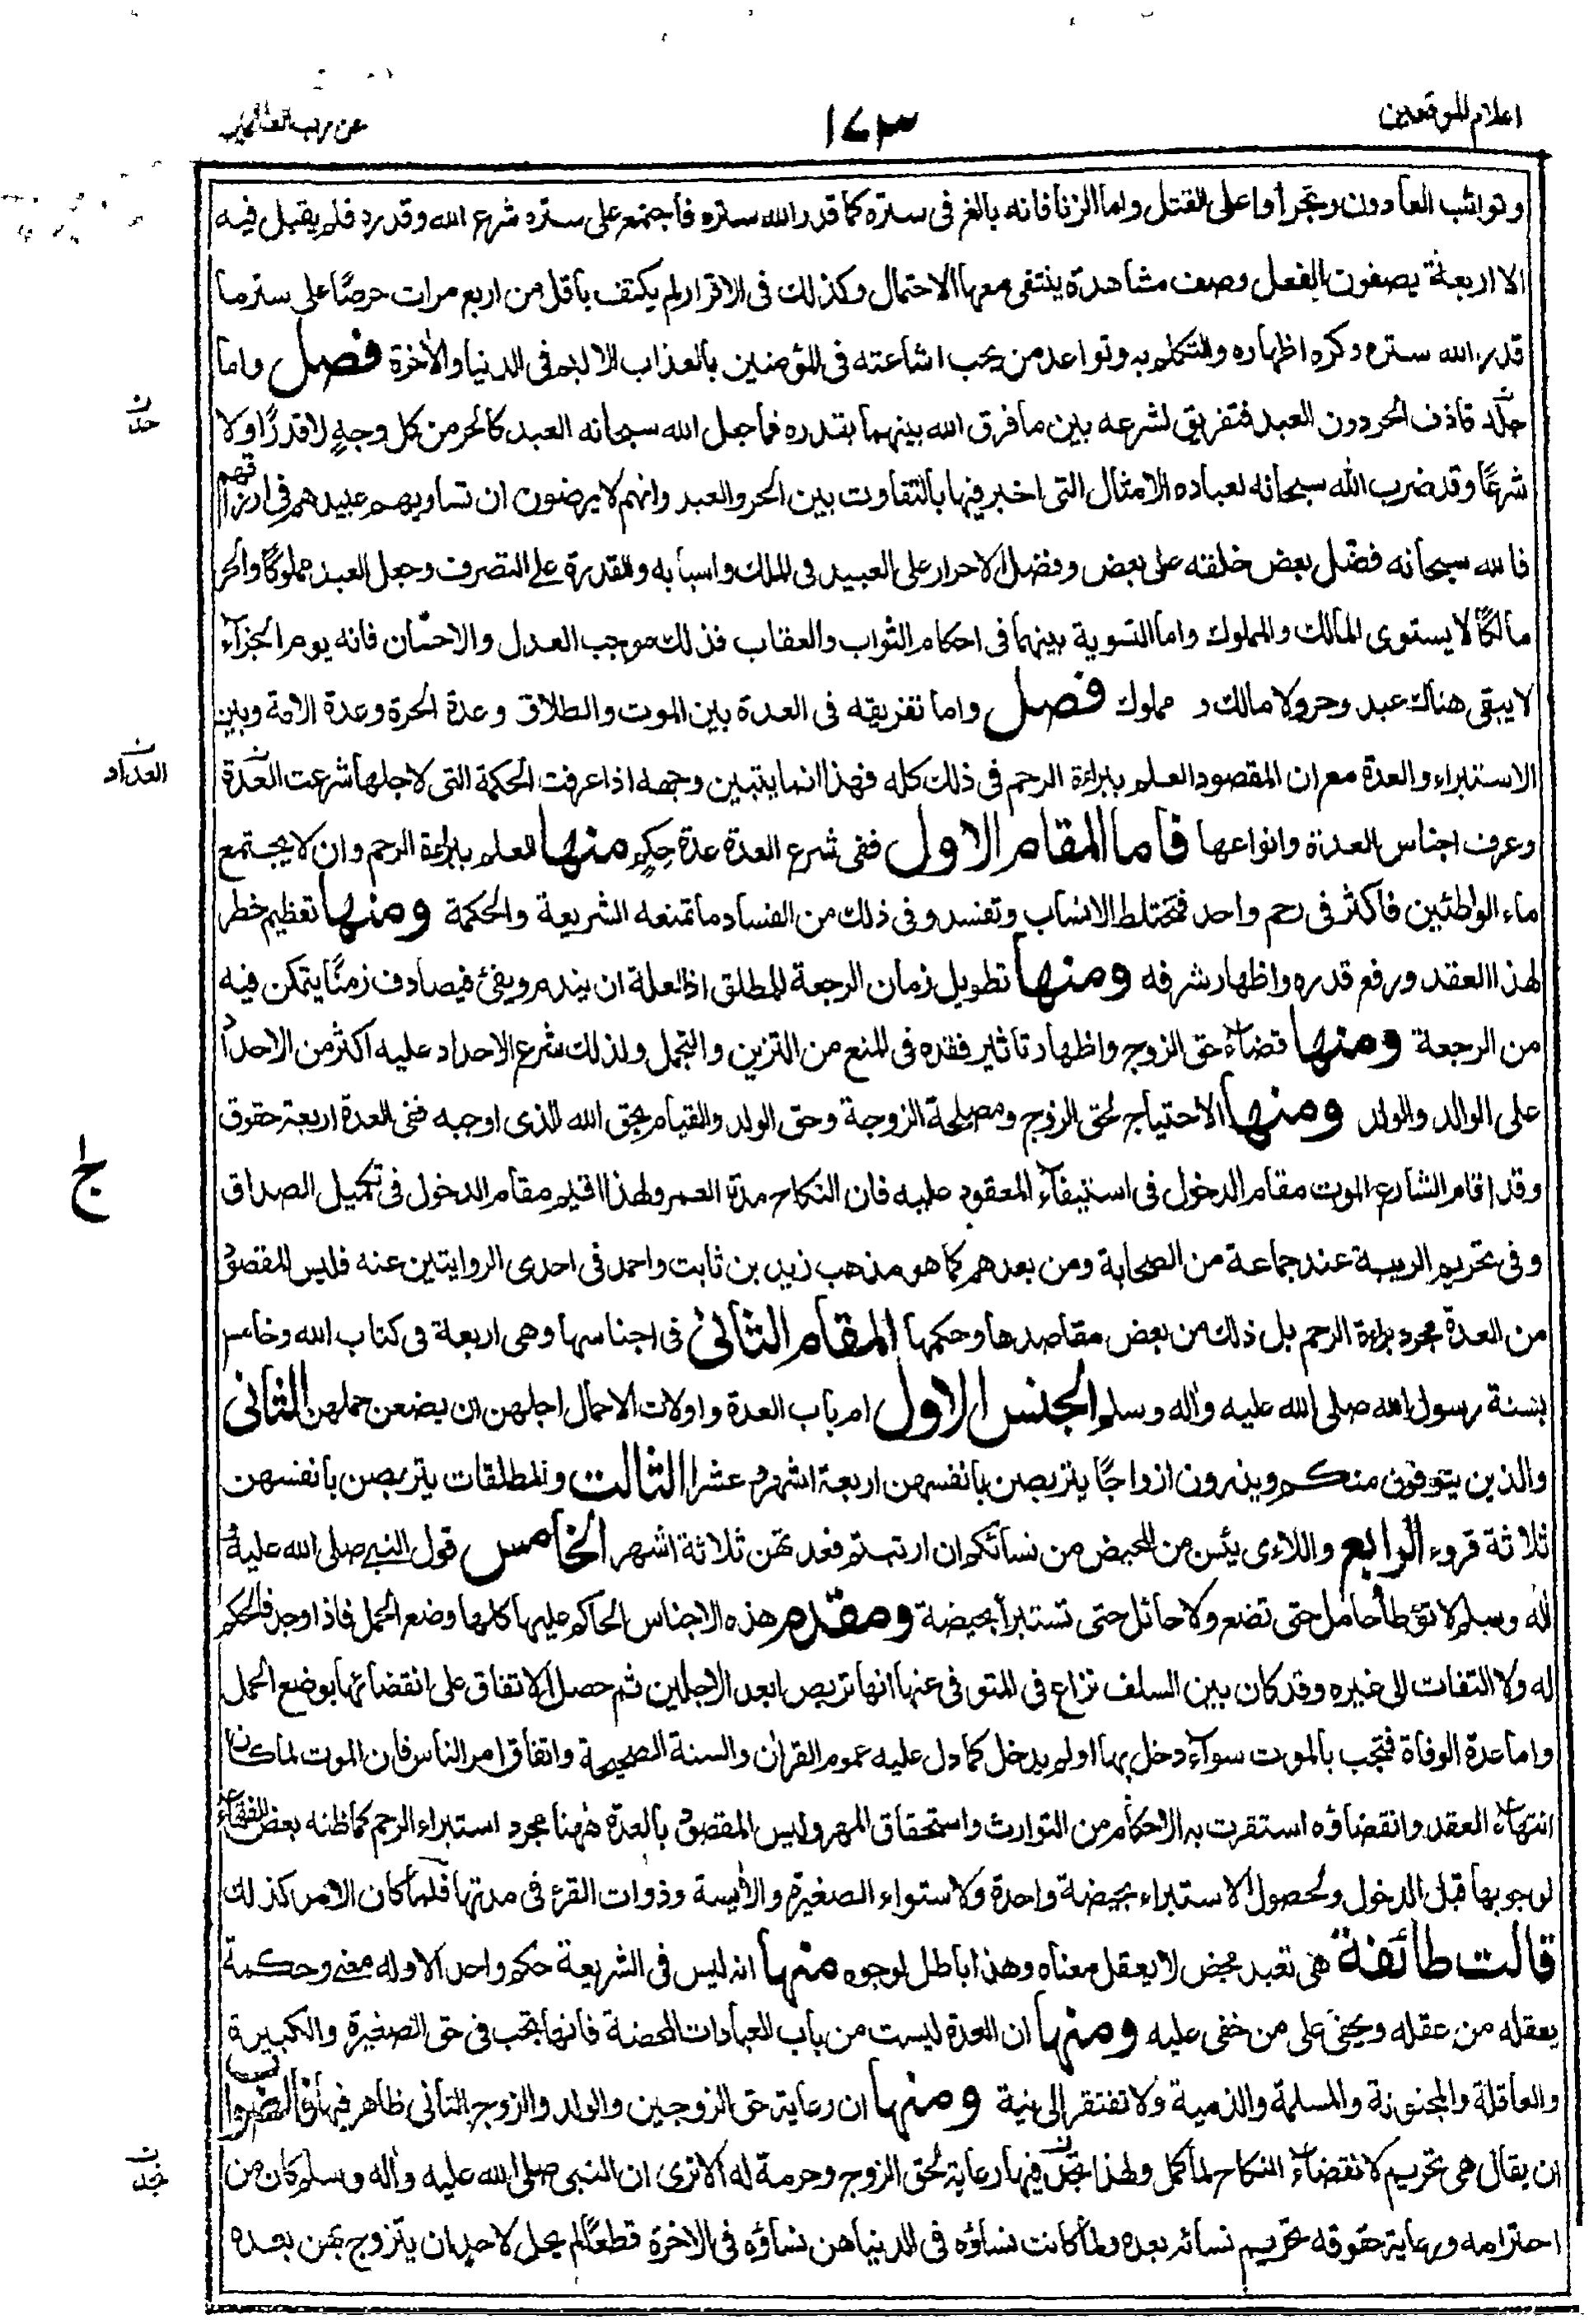 اعلام الموقعين
١٧٣
عن رب العالمين
وتواثب العادون وتجرأوا على القتل واما الزنا فانه بالغ فى ستره كما قدر الله ستره فاجتمع على ستره شرع الله وقدره فلم يقبل فيه
الا اربعة يصفون الفعل وصف مشاهدة ينتفى معها الاحتمال وكذلك فى الاقرار لم يكتف باقل من اربع مرات حرصًا على ستر ما
قدر الله ستره وكره اظهاره والتكلم به وتواعد من يحب اشاعته فى المؤمنين بالعذاب الاليم فى الدنيا والأخرة فصل واما
جلد قاذف الحر دون العبد فتفريق لشرعه بين ما فرق الله بينهما بقدره فما جعل الله سبحانه العبد كالحر من كل وجهٍ لا قدرًا ولا
حد ن
شرعًا وقد ضرب الله سبحانه لعباده الامثال التى اخبر فيها بالتفاوت بين الحر والعبد وانهم لا يرضون ان تساويهم عبيدهم فى ارزاقهم
فالله سبحانه فضّل بعض خلقه على بعض وفضل الاحرار على العبيد فى الملك واسبابه والقدرة على التصرف وجعل العبد مملوكًا والحر
مالكًا لا يستوى المالك والمملوك واما التسوية بينهما فى احكام الثواب والعقاب فذلك موجب العدل والاحسان فانه يوم الجزآء
لا يبقى هناك عبد وحر ولا مالك و مملوك فصل واما تفريقه فى العدة بين الموت والطلاق وعدة الحرة وعدة الامة وبين
الاستبراء والعدة مع ان المقصود العلم ببراءة الرحم فى ذلك كله فهذا انما يتبين وجهه اذا عرفت الحكمة التى لاجلها شرعت العدة
العداد ن
وعرف اجناس العدة وانواعها فاما المقام الاول ففى شرع العدة عدة حِكَمٍ منها العلم ببراءة الرحم وان لا يجتمع
ماء الواطئين فاكثر فى رحم واحد فتختلط الانساب وتفسد وفى ذلك من الفساد ما تمنعه الشريعة والحكمة ومنها تعظيم خطر
هذا العقد ورفع قدره واظهار شرفه ومنها تطويل زمان الرجعة للمطلق اذ لعله ان يندم ويفئ فيصادف زمنًا يتمكن فيه
من الرجعة ومنها قضاء حق الزوج واظهار تاثير فقده فى المنع من التزين والتجمل ولذلك شرع الاحداد عليه اكثر من الاحداد
على الوالد والولد ومنها الاحتياج لحق الزوج ومصلحة الزوجة وحق الولد والقيام بحق الله الذى اوجبه ففى العدة اربعة حقوق
وقد اقام الشارع الموت مقام الدخول فى استيفآء المعقود عليه فان النكاح مدة العمر ولهذا اقيم مقام الدخول فى تكميل الصداق
ج ا
وفى تحريم الربيبة عند جماعة من الصحابة ومن بعدهم كما هو مذهب زيد بن ثابت واحمد فى احدى الروايتين عنه فليس المقصود
من العدة مجرد براءة الرحم بل ذلك من بعض مقاصدها وحكمها المقام الثانى فى اجناسها وهى اربعة فى كتاب الله وخامس
بسنة رسول الله صلى الله عليه وأله وسلم الجنس الاول ام باب العدة واولات الاحمال اجلهن ان يضعن حملهن الثانى
والذين يتوفون منكم ويذرون ازواجًا يتربصن بانفسهن اربعة اشهر وعشرا الثالث والمطلقات يتربصن بانفسهن
ثلاثة قروء الرابع واللاءى يئسن من المحيض من نسائكم ان ارتبتم فعدتهن ثلاثة اشهر الخامس قول النبى صلى الله عليه و
أله وسلم لا تؤطأ حامل حتى تضع ولا حائل حتى تستبرأ بحيضة ومقدم هذه الاجناس الحاكم عليها كلها وضع الحمل فاذا وجد فالحكم
له ولا التفات الى غيره وقد كان بين السلف نزاع فى المتوفى عنها انها تربص ابعد الاجلين ثم حصل الاتفاق على انقضائها بوضع الحمل
واما عدة الوفاة فتجب بالموت سوآء دخل بها او لم يدخل كما دل عليه عموم القرأن والسنة الصحيحة واتفاق امر الناس فان الموت لما كان
انتهاء العقد وانقضاؤه استقرت به الاحكام من التوارث واستحقاق المهر وليس المقصود بالعدة ههنا مجرد استبراء الرحم كما ظنه بعض الفقهاء
لوجوبها قبل الدخول ولحصول الاستبراء بحيضة واحدة ولاستواء الصغيرة والأيسة وذوات القرء فى مدتها فلما كان الامر كذلك
قالت طائفة هى تعبد محض لا يعقل معناه وهذا باطل لوجوه منها انه ليس فى الشريعة حكم واحد الا وله معنى وحكمة
يعقله من عقله ويخفى على من خفى عليه ومنها ان العدة ليست من باب العبادات المحضة فانها تجب فى حق الصغيرة والكبيرة
والعاقلة والمجنونة والمسلمة والذمية ولا تفتقر الى نية ومنها ان رعاية حق الزوجين والولد والزوج الثانى ظاهر فيها فالصواب
ان يقال هى تحريم لانقضاء النكاح لما كمل ولهذا تجد فيها رعاية لحق الزوج وحرمة له ألا ترى ان النبى صلى الله عليه وأله وسلم كان من
احترامه ورعاية حقوقه تحريم نسائه بعده ولما كانت نساؤه فى الدنيا هن نساؤه فى الاخرة قطعًا لم يحل لاحد ان يتزوج بهن بعده